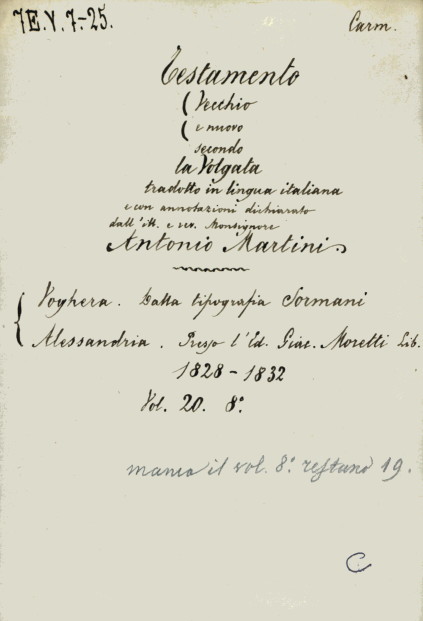 7E.V.7.-25.
Carm.
Testamento
( Vecchio
( e nuovo
secondo
la Volgata
tradotto in lingua italiana
e con annotazioni dichiarato
dall'ill. e rev. Monsignore
Antonio Martini.
{ Voghera. Dalla tipografia Sormani
Alessandria. Presso l'Ed. Giac. Moretti Lib.
1828-1832
Vol. 20. 8°.
manca il vol. 8° restano 19.
C